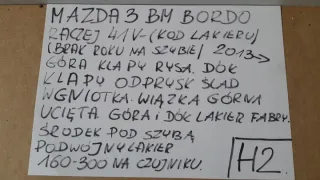 MAZDA 3 BM BORDO
RACZEJ 41V-(KOD LAKIERU)
(BRAK ROKU NA SZYBIE) 2013→
GÓRA KLAPY RYSA. DÓŁ
KLAPY ODPRYSK ŚLAD
WGNIOTKA. WIĄZKA GÓRNA
UCIĘTA GÓRA i DÓŁ LAKIER FABRY.
ŚRODEK POD SZYBĄ
PODWÓJNY LAKIER
160-300 NA CZUJNIKU.
H2.